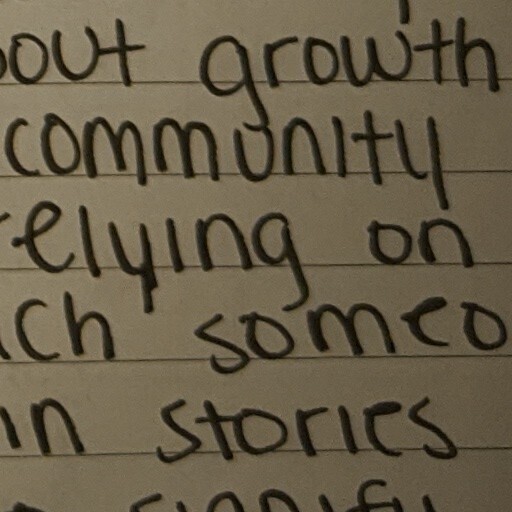 out growth
community
relying on
ch someo
in stories
signify